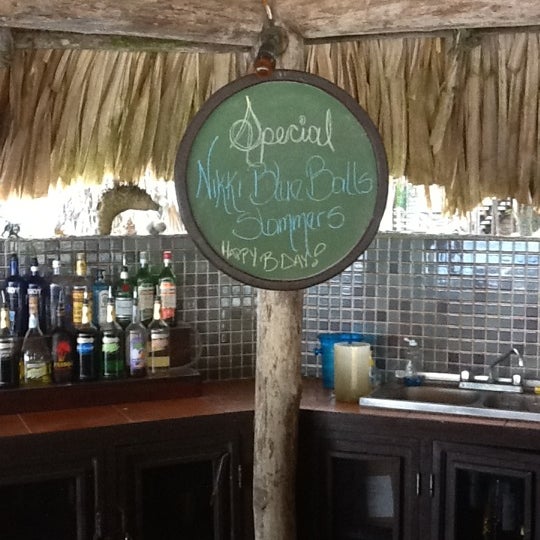 Special
Nikki Blue Balls
Slammers
Happy B Day!